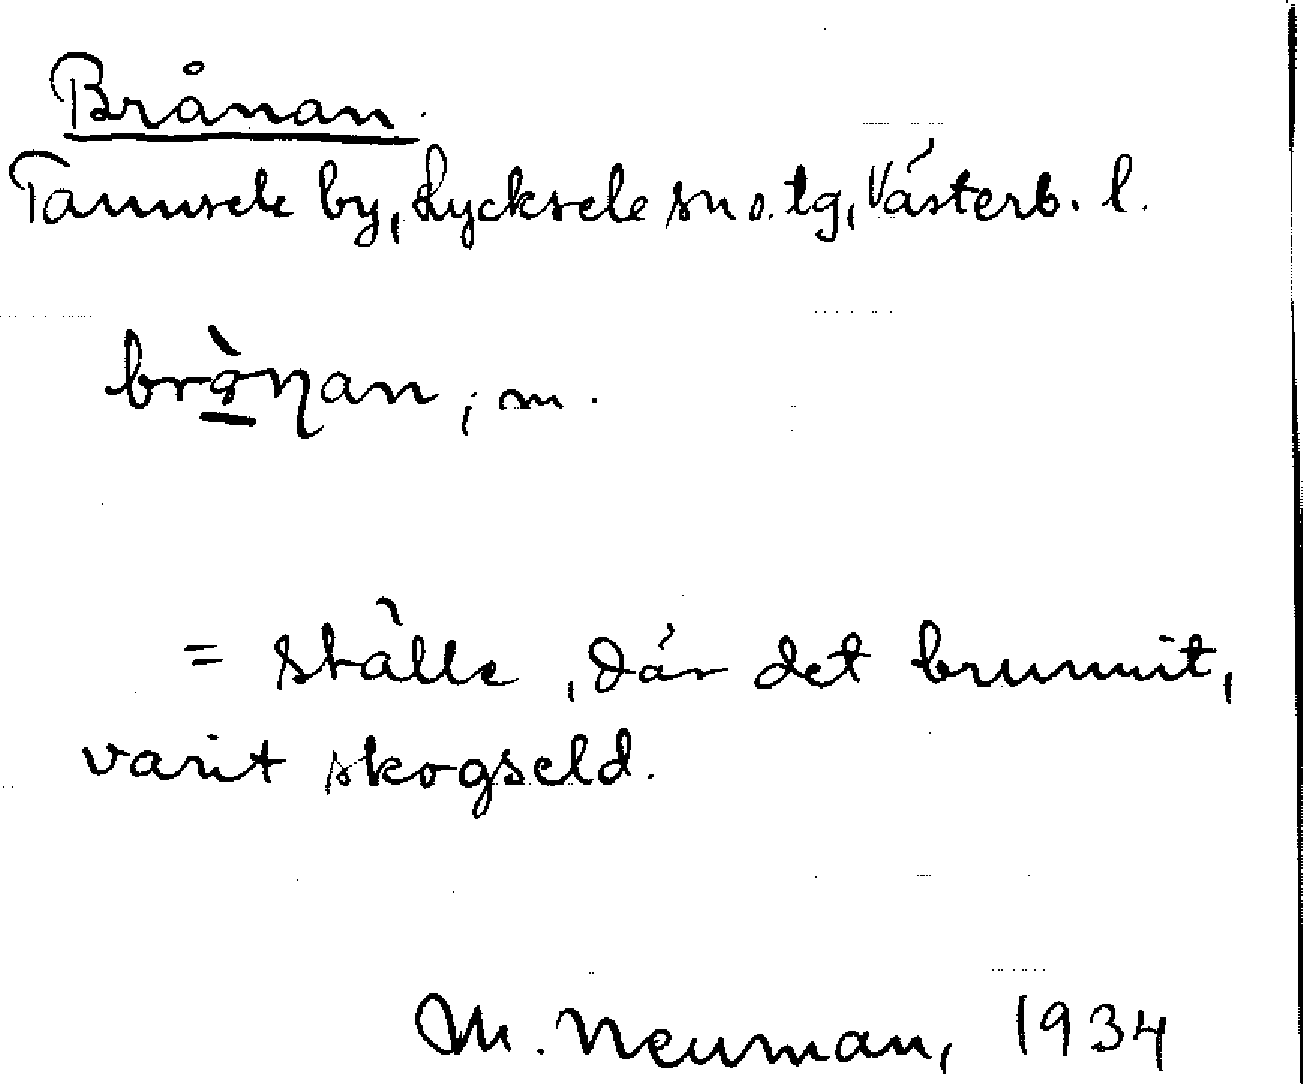 Brånan.
Tannsele by, Lycksele sn o. tg, Västerb. l.
brå̀ŋan, m.
= ställe, där det brunnit,
varit skogseld.
M. Neuman, 1934